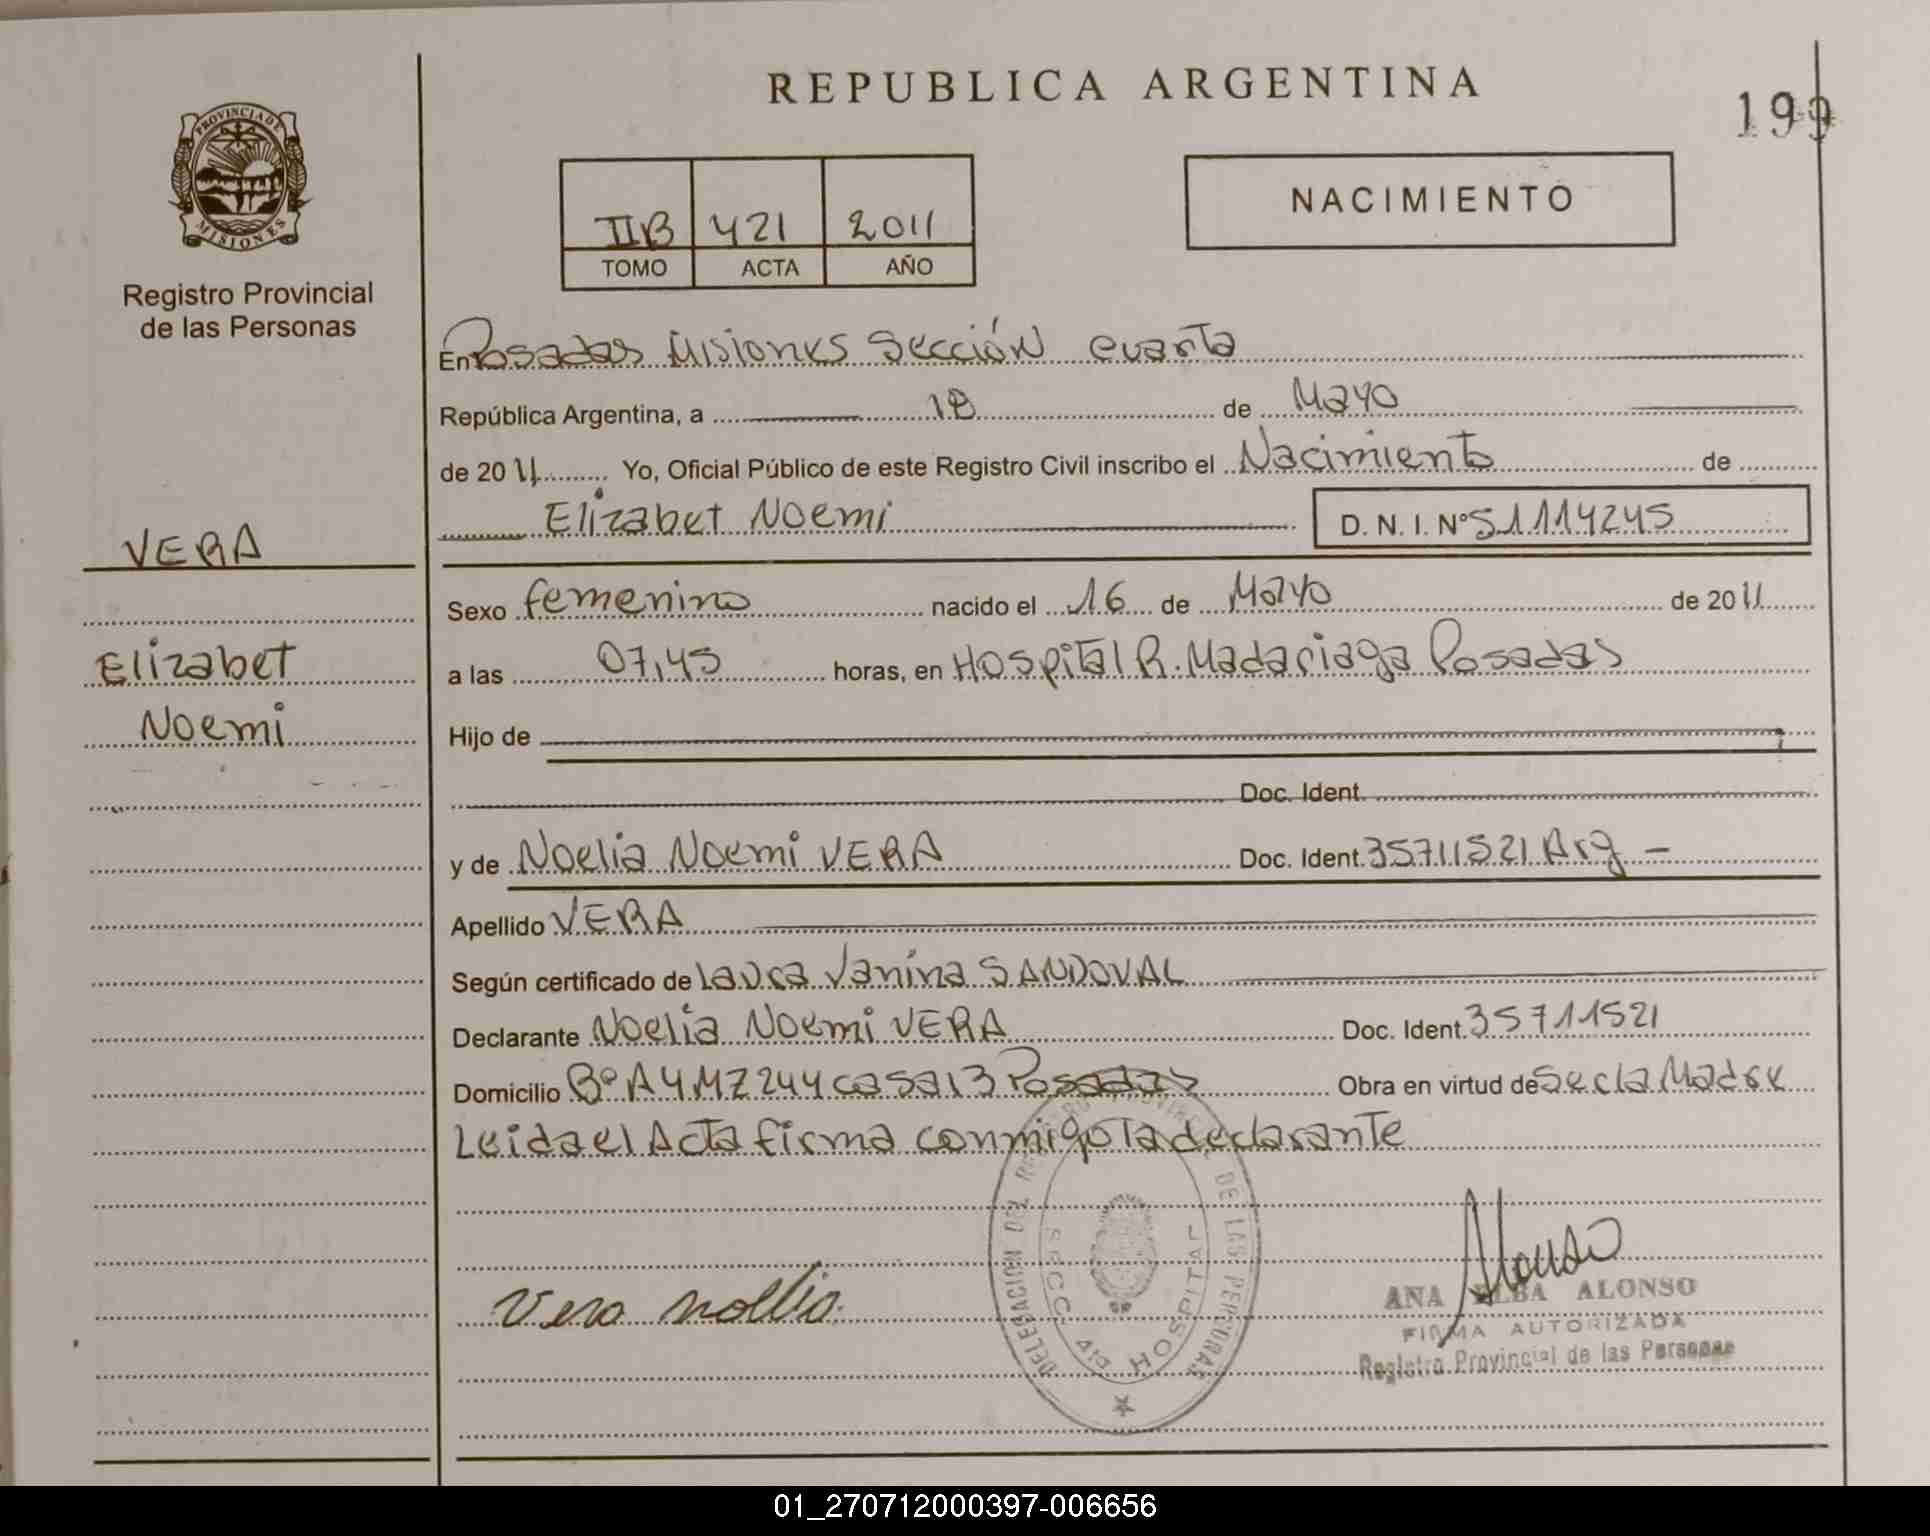 REPUBLICA ARGENTINA
199
PROVINCIA DE
MISIONES
Registro Provincial
de las Personas
IIB 421 2011
TOMO ACTA AÑO
NACIMIENTO
En Posadas Misiones Sección cuarta
República Argentina, a 18 de Mayo
de 2011 Yo, Oficial Público de este Registro Civil inscribo el Nacimiento de
Elizabet Noemi D. N. I. Nº 51114245
VERA
Elizabet
Noemi
Sexo femenino nacido el 16 de Mayo de 2011
a las 07,45 horas, en Hospital R. Madariaga Posadas
Hijo de
Doc. Ident.
y de Noelia Noemi VERA Doc. Ident. 35711521 Arg -
Apellido VERA
Según certificado de Laura Vanina SANDOVAL
Declarante Noelia Noemi VERA Doc. Ident. 35711521
Domicilio Bº A4 MZ 244 casa 13 Posadas Obra en virtud de Ser la Madre
Leida el Acta firma conmigo la declarante
DELEGACION DEL REGISTRO PROVINCIAL DE LAS PERSONAS
SECC. 4ta HOSPITAL
Vera noelia
Alonso
ANA ELBA ALONSO
FIRMA AUTORIZADA
Registro Provincial de las Personas
01_270712000397-006656